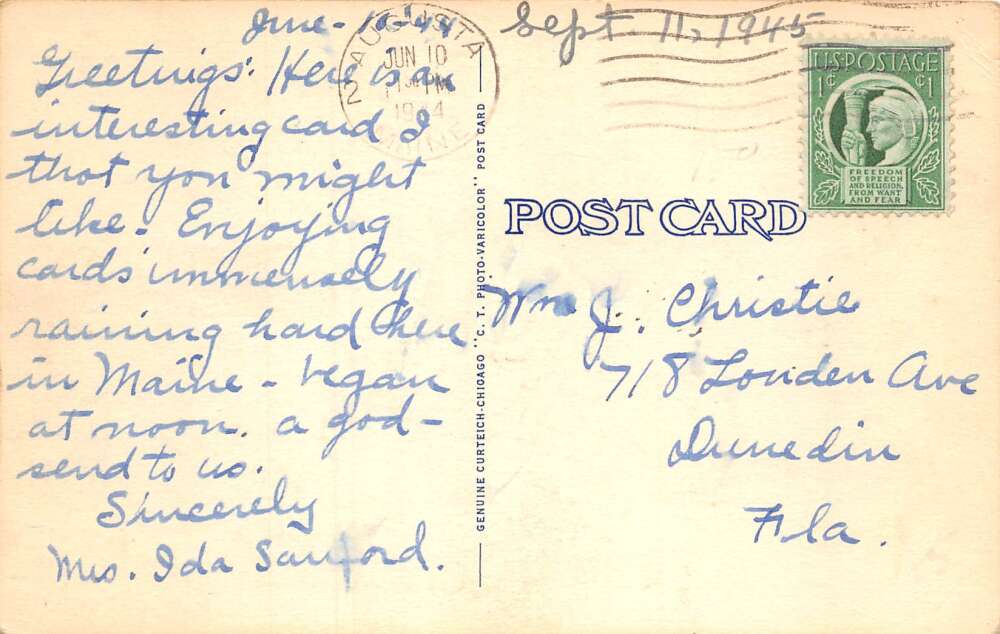 June - 10 - 44
Greetings: Here is an
interesting card I
that you might
like. Enjoying
cards immensely
raining hard here
in Maine - began
at noon. a god-
send to us.
Sincerely
Mrs. Ida Sanford.
AUGUSTA
JUN 10
PM
1944
MAINE
2
Sept. 11, 1945
U.S. POSTAGE
1¢ ¢1
FREEDOM
OF SPEECH
AND RELIGION,
FROM WANT
AND FEAR
GENUINE CURTEICH-CHICAGO "C. T. PHOTO-VARICOLOR" POST CARD
POST CARD
Wm J. Christie
718 Louden Ave
Dunedin
Fla.